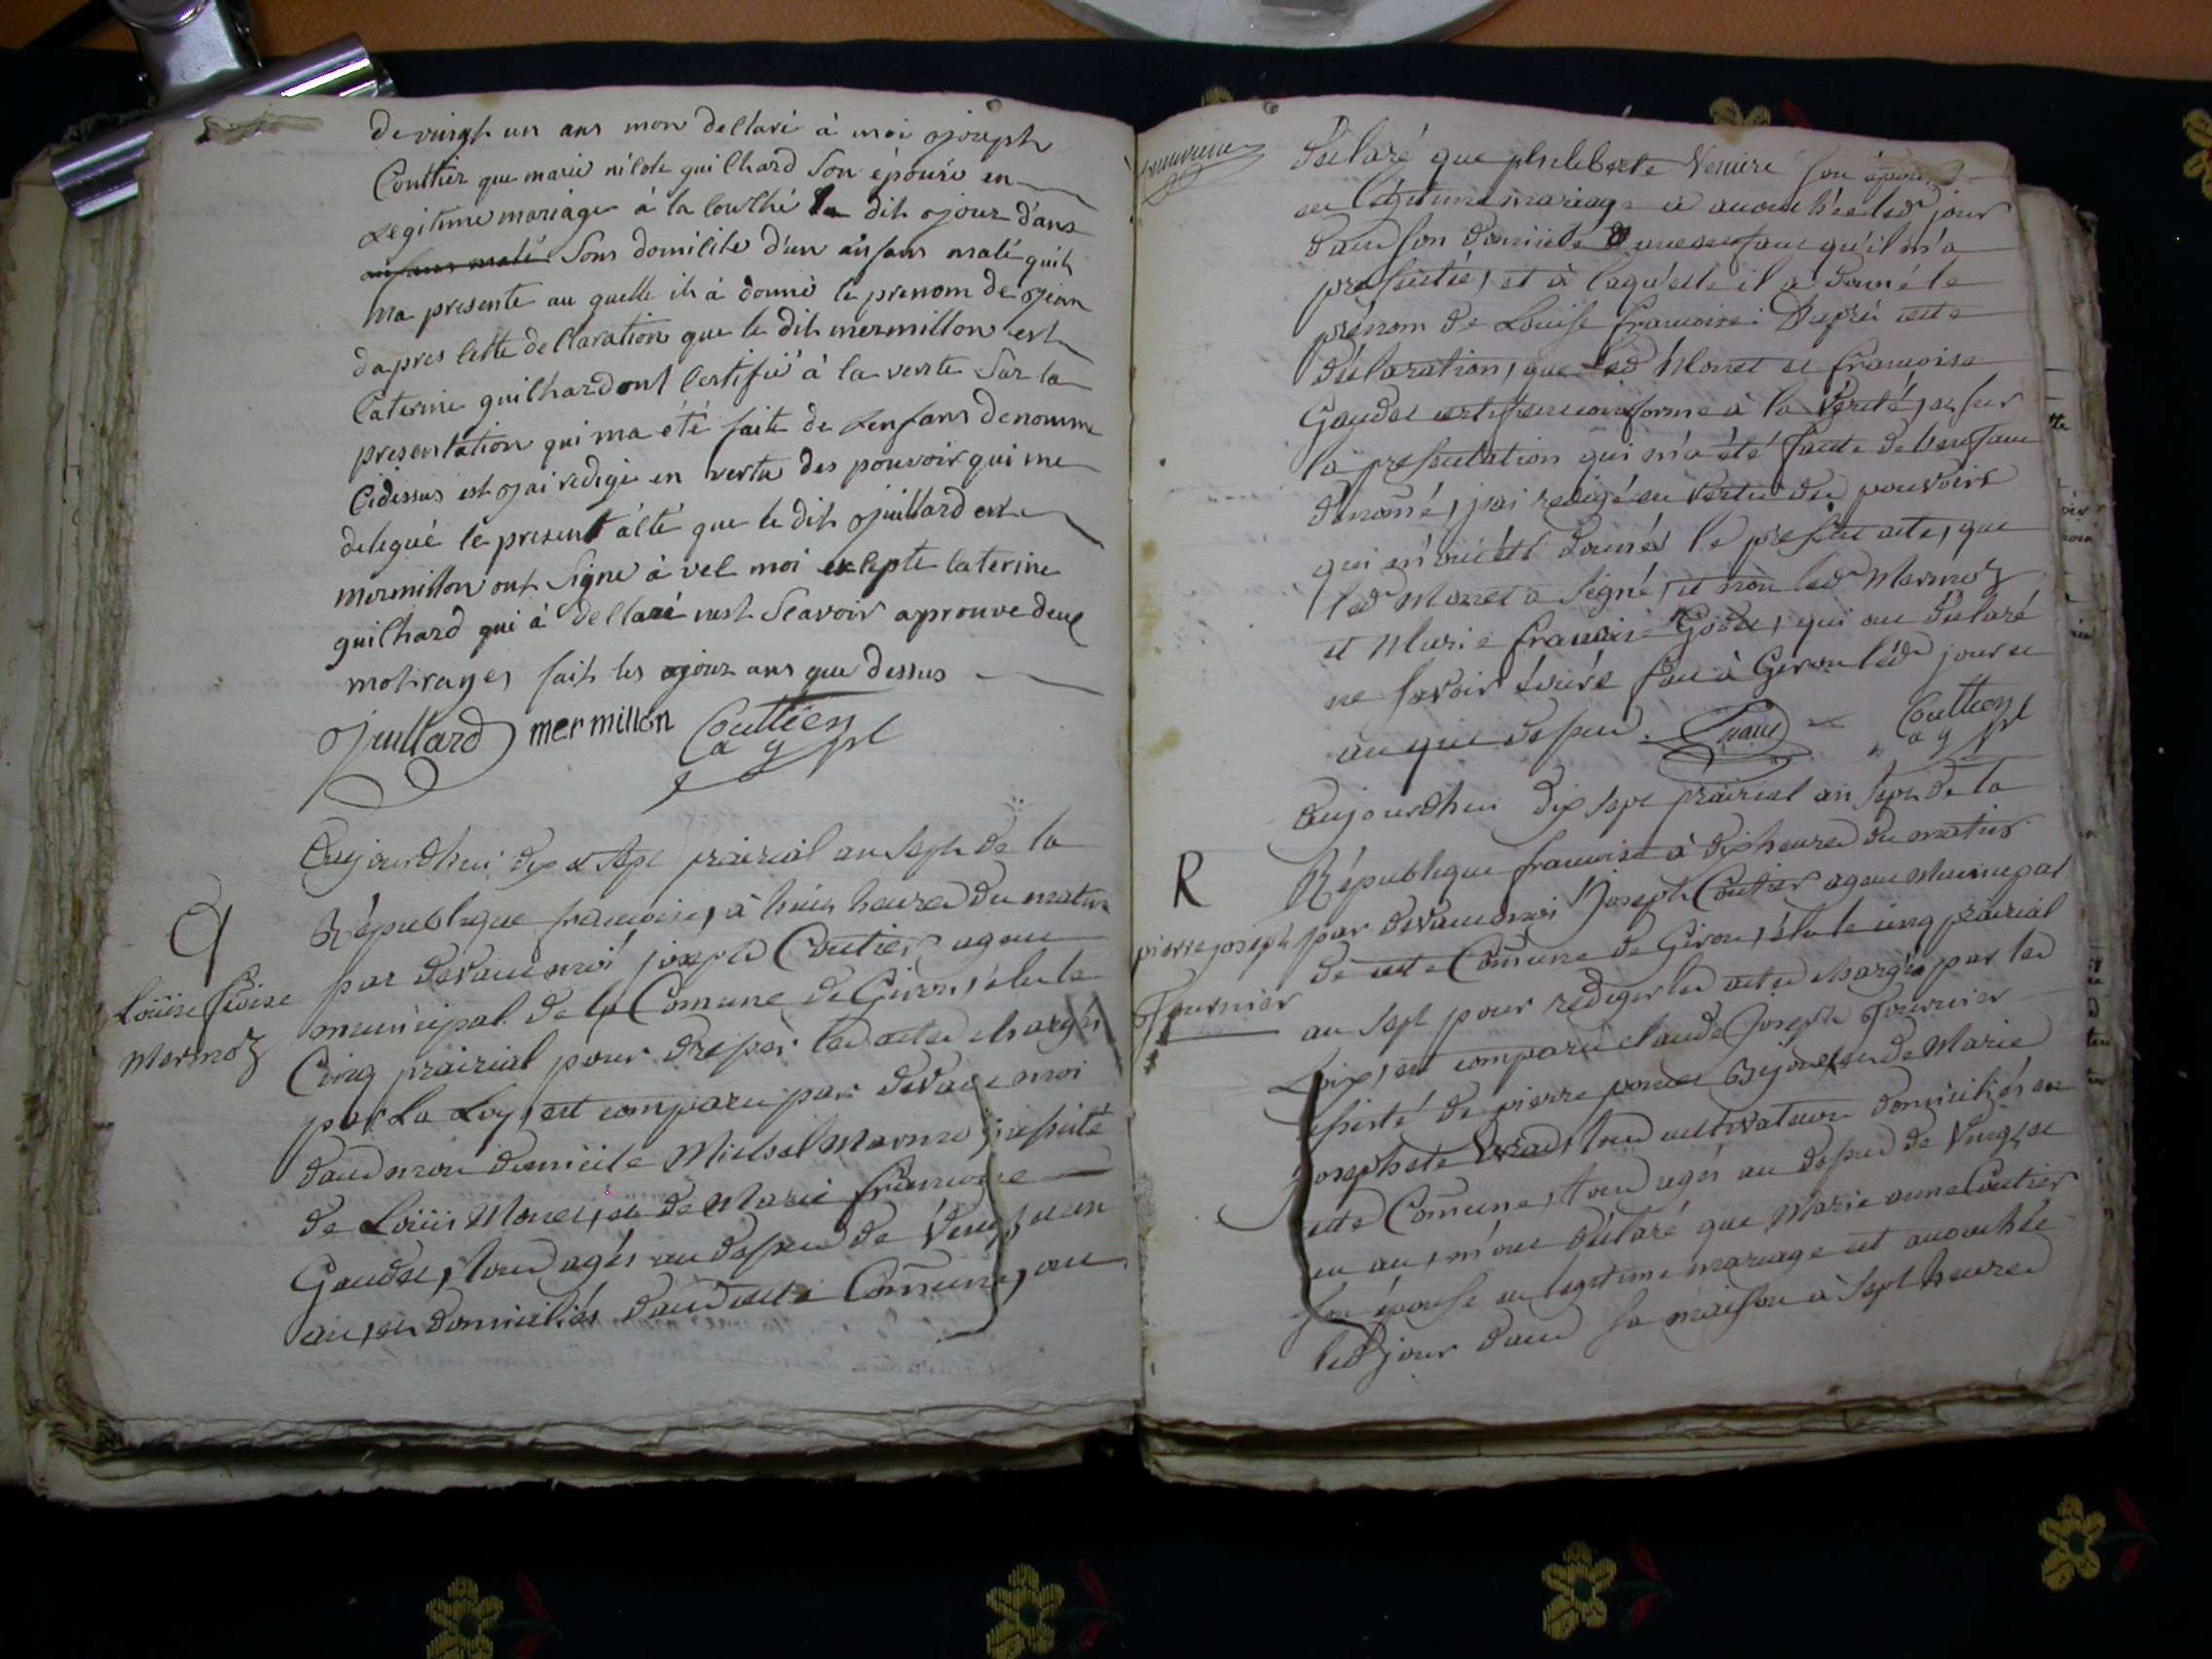 de vingt un ans mon dellaré à moi ojoseph
Couttier que marie nicole guilhard son épouse en
Legitime mariage à la couthé le dit ojour dans
enfans malé Sons domicile d'un anfans malé quil
ma presente au quelle il à donné le prenom de ojean
dapres lette dellaration que le dit mermillon est
Caterine guilhard ont Certifié à la verite Sur la
presentation qui ma été faite de Lenfans denomme
Cidessus est ojai redigé en vertu des pouvoir qui me
delegué le present alte que le dit ojuillard est
mermillon ont Signe à vel moi exlepte laterine
guilhard qui à dellaré nest Scavoir aprouve deux
mot rayes fait les ojour ans que dessus
ojuillard mermillon Couttier
a g pl
Aujourdhui dix et sept prairial an sept de la
République francoise, à huit heures du matin
par devant moi joseph Coutier agent
municipal de la Comune de Giron, élu le
Cinq prairial pour dresser les actes chargés
par La Loy, est comparu par devant moi
dans mon domicile Michel Marmoz, assisté
de Loüis Monet, et de Marie francoise
Gaudet, tous agés au dessus de Vingt et un
an, et domiciliés dans cette Comune, ont
9
Loüise fcoise
Marmoz
déclaré que philiberte Venière son épouse
en légitime mariage a accouchée led jour
dans son domicile d'une enfant qu'il m'a
présentée, et à laquelle il a donné le
prénom de Louise francoise: Duprès cette
déclaration, que led Monet et francoise
Gaudet certifient conforme à la vérité, et sur
la présentation qui m'a été faite de l'enfant
dénomé, j'ai redigé en vertu des pouvoirs
qui m'ont été donnés le présent acte, que
led Monet a signé, et non led Marmoz
et Marie francoise Godet, qui ont déclaré
ne savoir écrire fait à Giron led jour et
an que dessus. Couttier
a g pl
Aujourdhui dix sept prairial an sept de la
R République francoise à dix heures du matin
par devant moi Joseph Coutier agent Municipal
pierre joseph
de cette Comune de Giron, élu le cinq prairial
Fournier
an sept pour rediger les actes chargés par les
Loix, est comparu claude Joseph Fournier
assisté de pierre poncet Bijonet et de Marie
Josephete tous cultivateurs domiciliés en
cette Comune, tous agés au dessus de Vingt et
un an, m'ont déclaré que Marie anne Coutier
son épouse en legitime mariage est accouchée
led jour dans sa maison à sept heures